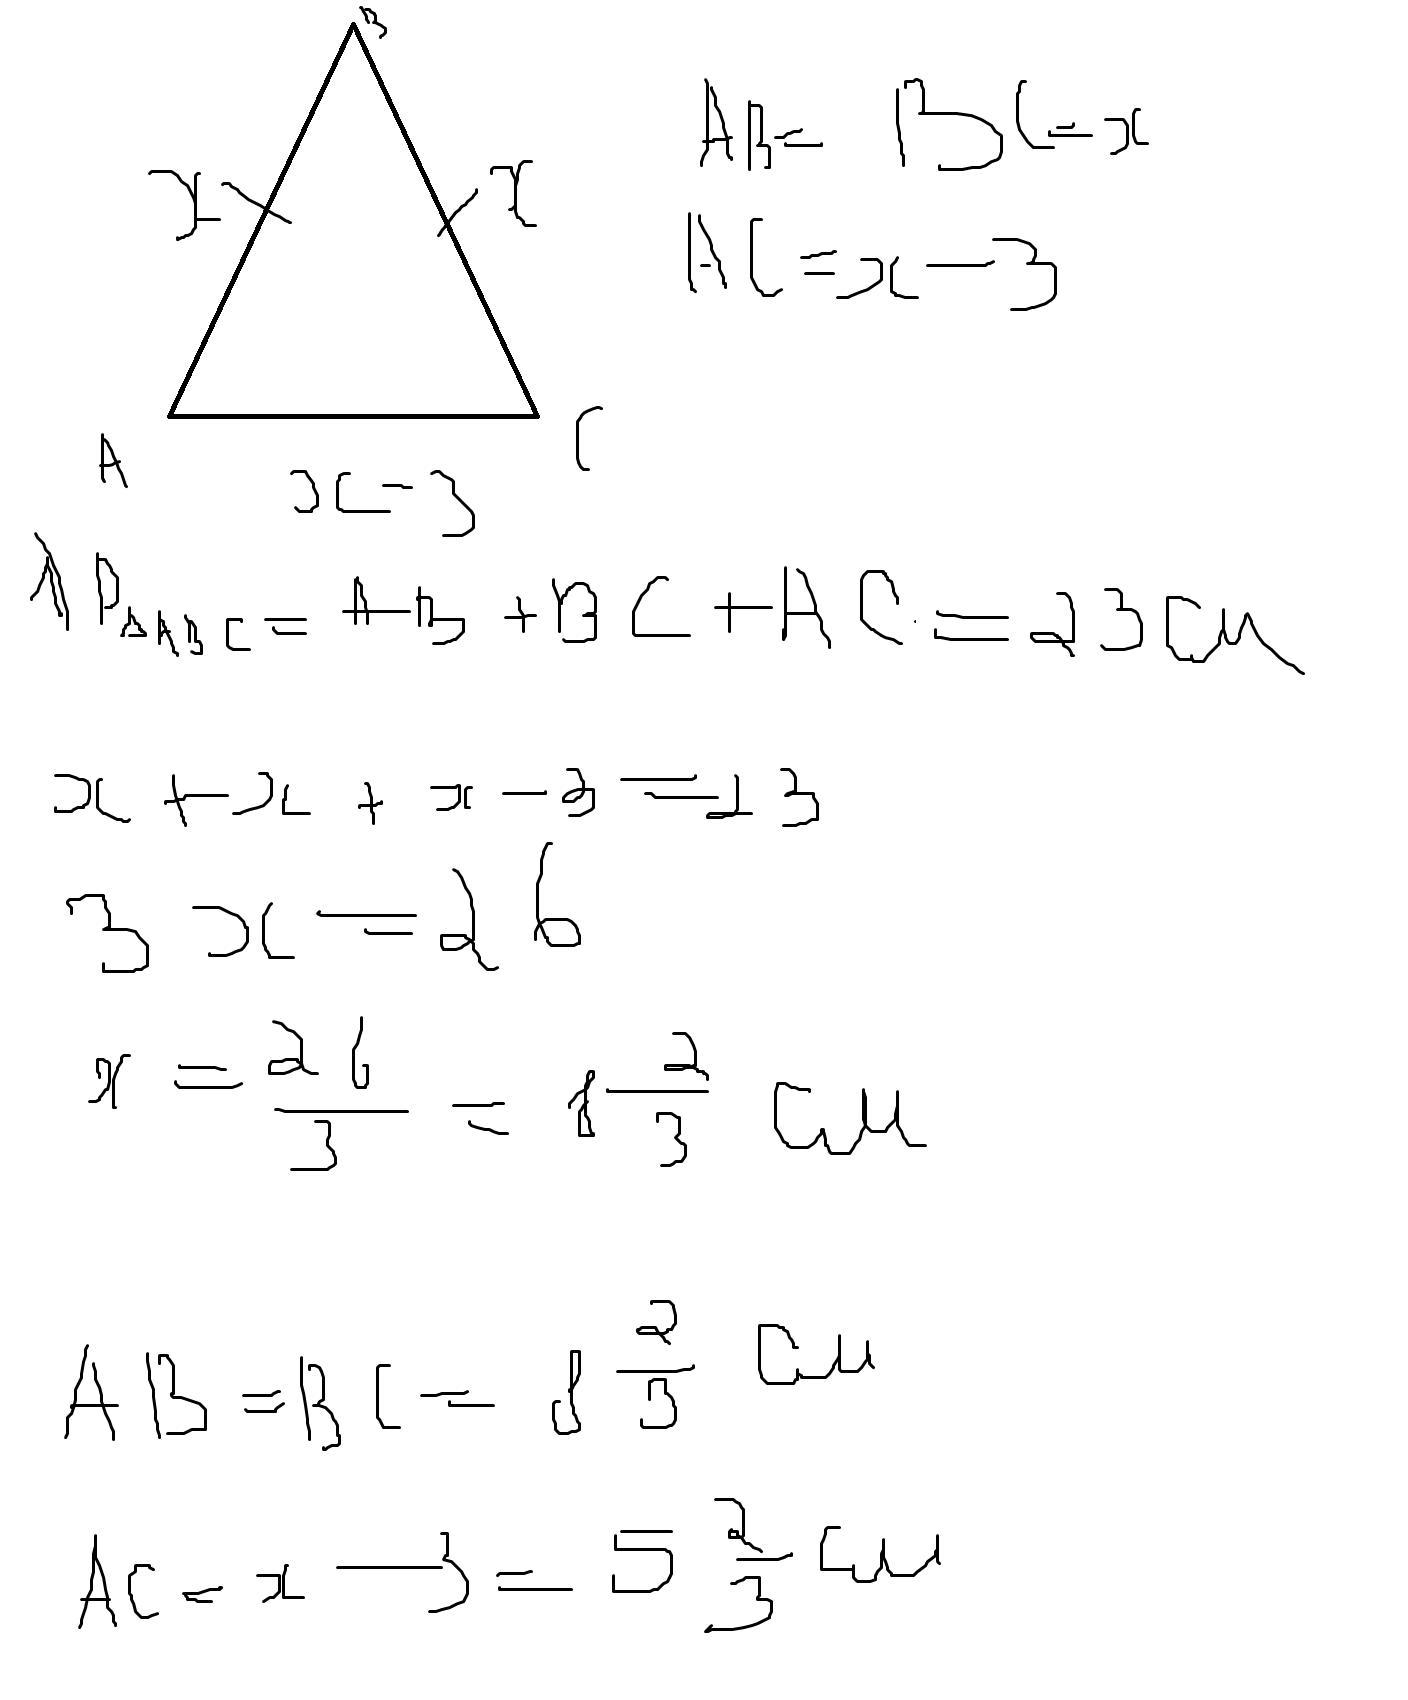 B
AB = BC = x
x x
AC = x - 3
A C
x - 3
1) P△ABC = AB + BC + AC = 23 см
x + x + x - 3 = 23
3x = 26
x = 26/3 = 8 2/3 см
AB = BC = 8 2/3 см
AC = x - 3 = 5 2/3 см